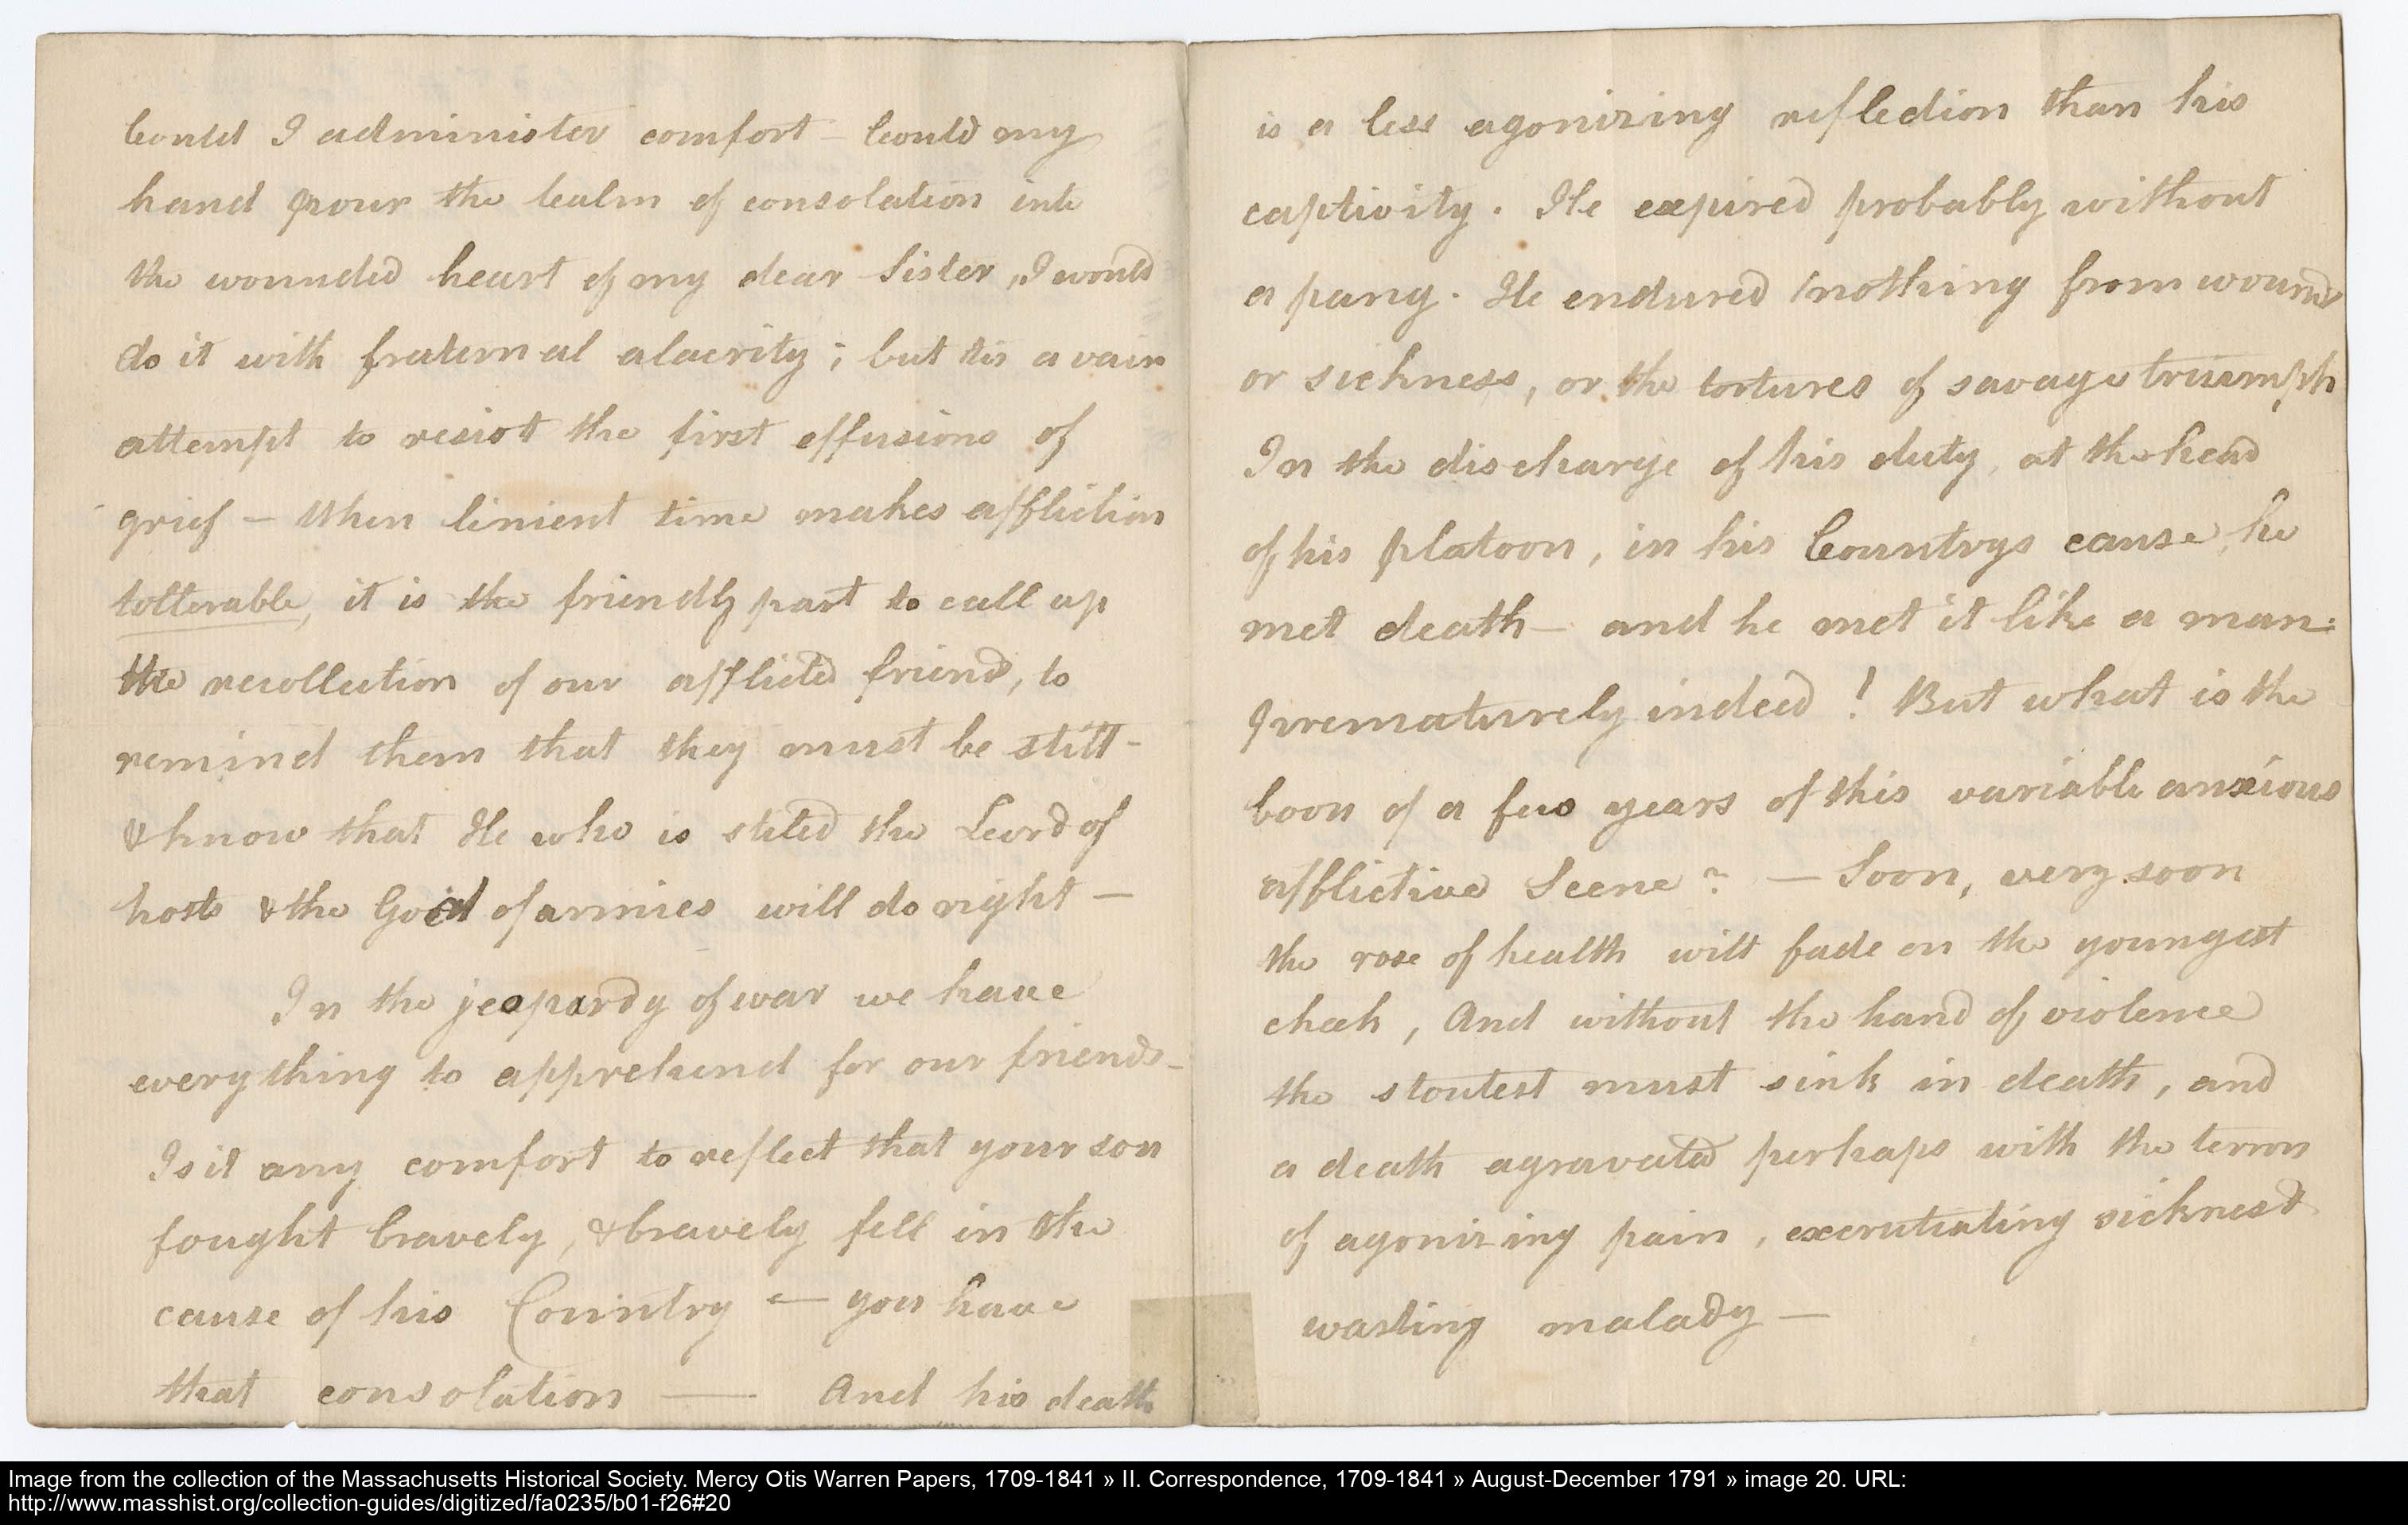 Could I administer comfort – Could my
hand pour the balm of consolation into
the wounded heart of my dear Sister, I would
do it with fraternal alacrity; but tis a vain
attempt to resist the first effusions of
grief – When linient time makes affliction
tollerable, it is the friendly part to call up
the recollection of our afflicted friend, to
remind them that they must be still –
& know that He who is stiled the Lord of
hosts & the God of armies will do right –
In the jeopardy of war we have
every thing to apprehend for our friends –
Is it any comfort to reflect that your son
fought bravely, & bravely fell in the
cause of his Country – you have
that consolation — And his death
is a less agonizing reflection than his
captivity. He expired probably without
a pang. He endured nothing from wounds
or sickness, or the tortures of savage triumph
In the discharge of his duty, at the head
of his platoon, in his Countrys cause, he
met death – and he met it like a man.
prematurely indeed! But what is the
boon of a few years of this variable anxious
afflictive Scene? – Soon, very soon
the rose of health will fade on the youngest
cheek, And without the hand of violence
the stoutest must sink in death, and
a death agravated perhaps with the terrors
of agonizing pain, excrutiating sickness &
wasting malady –
Image from the collection of the Massachusetts Historical Society. Mercy Otis Warren Papers, 1709-1841 » II. Correspondence, 1709-1841 » August-December 1791 » image 20. URL:
http://www.masshist.org/collection-guides/digitized/fa0235/b01-f26#20